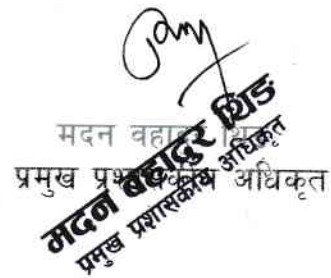 मदन वहादुर थिङ
प्रमुख प्रशासकीय अधिकृत
मदन बहादुर थिङ
प्रमुख प्रशासकीय अधिकृत